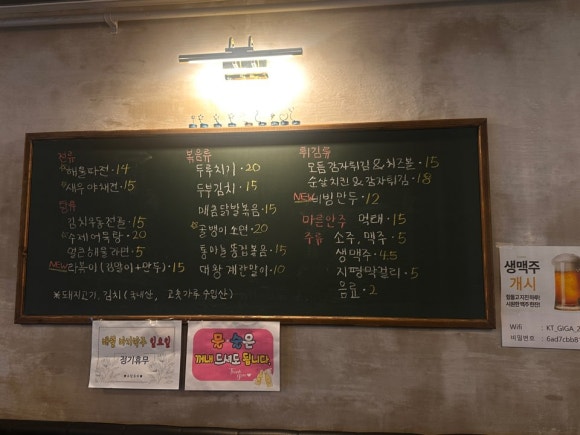 전류
해물파전 · 14
새우야채전 · 15
탕류
김치우동전골 · 15
수제어묵탕 · 20
얼큰해물라면 · 5
NEW 라볶이 (떡볶이+만두) · 15
※돼지고기, 김치 (국내산, 고춧가루 수입산)
볶음류
두루치기 · 20
두부김치 · 15
매콤닭발볶음 · 15
골뱅이소면 · 20
통마늘똥집볶음 · 15
대왕계란말이 · 10
튀김류
모듬감자튀김&치즈볼 · 15
순살치킨&감자튀김 · 18
NEW 비빔만두 · 12
마른안주 먹태 · 15
주류 소주, 맥주 · 5
생맥주 · 45
지평막걸리 · 5
음료 · 2
매월 마지막주 일요일
정기휴무
물·술은
꺼내 드셔도 됩니다.
생맥주
개시
Wifi : KT_GIGA_2
비밀번호 : 6ad7cbb8